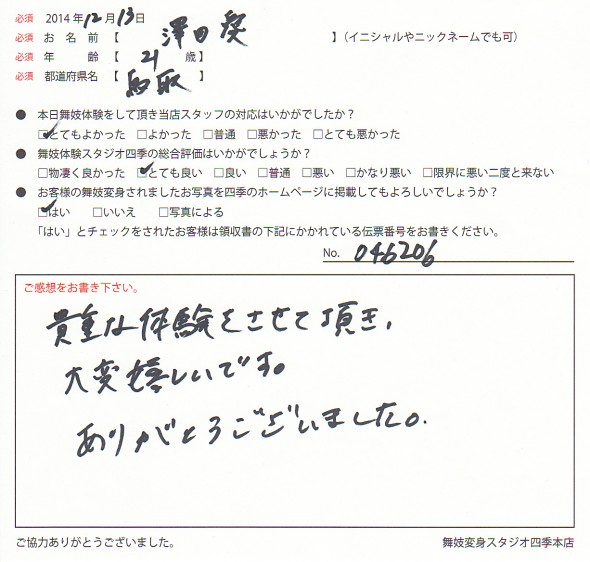 必須 2014年12月13日
必須 お名前【 澤田 葵 】（イニシャルやニックネームでも可）
必須 年齢【 21 歳】
必須 都道府県名【 鳥取 】
● 本日舞妓体験をして頂き当店スタッフの対応はいかがでしたか？
☑とてもよかった □よかった □普通 □悪かった □とても悪かった
● 舞妓体験スタジオ四季の総合評価はいかがでしょうか？
□物凄く良かった ☑とても良い □良い □普通 □悪い □かなり悪い □限界に悪い二度と来ない
● お客様の舞妓変身されましたお写真を四季のホームページに掲載してもよろしいでしょうか？
☑はい □いいえ □写真による
「はい」とチェックをされたお客様は領収書の下記にかかれている伝票番号をお書きください。
No. 046206
ご感想をお書き下さい。
貴重な体験をさせて頂き、
大変嬉しいです。
ありがとうございました。
ご協力ありがとうございました。 舞妓変身スタジオ四季本店